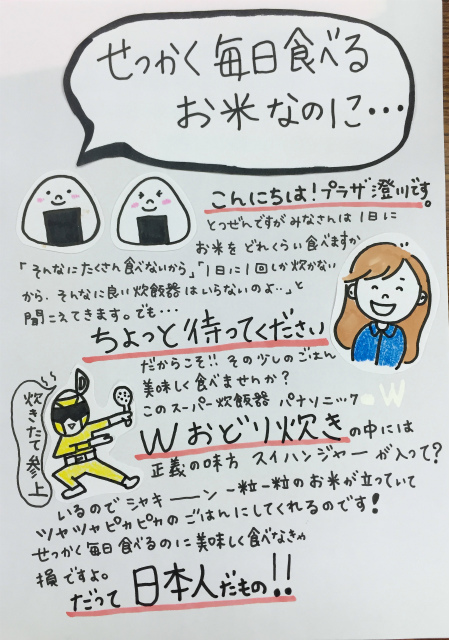 せっかく毎日食べる
お米なのに…
こんにちは！プラザ澄川です。
とつぜんですがみなさんは1日に
お米をどれくらい食べますか
「そんなにたくさん食べないから」「1日に1回しか炊かない
から、そんなに良い炊飯器はいらないのよ‥」と
聞こえてきます。でも・・・
ちょっと待ってください
だからこそ!! その少しのごはん
美味しく食べませんか？
このスーパー炊飯器 パナソニック W
Wおどり炊きの中には
正義の味方 スイハンジャーが入って？
炊きたて参上
いるのでシャキーーン 一粒一粒のお米が立っていて
ツヤツヤピカピカのごはんにしてくれるのです！
せっかく毎日食べるのに美味しく食べなきゃ
損ですよ。
だって日本人だもの!!